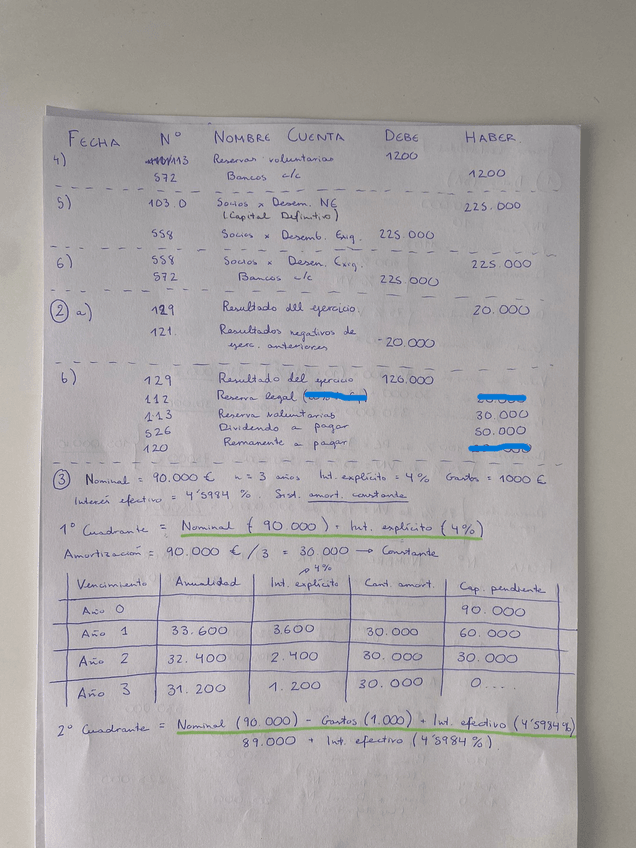 FECHA Nº NOMBRE CUENTA DEBE HABER
4) 113 Reservas voluntarias 1200
572 Bancos c/c 1200
5) 103.0 Socios x Desem. NE 225.000
(Capital Definitivo)
558 Socios x Desemb. Exig. 225.000
6) 558 Socios x Desem. Exig. 225.000
572 Bancos c/c 225.000
2 a) 129 Resultado del ejercicio 20.000
121. Resultados negativos de
ejerc. anteriores 20.000
b) 129 Resultado del ejercicio 120.000
112 Reserva legal
113 Reserva voluntarias 30.000
526 Dividendo a pagar 50.000
120 Remanente a pagar
3 Nominal = 90.000 € n = 3 años Int. explícito = 4% Gastos = 1000 €
Interés efectivo = 4'5984 %. Sist. amort. constante
1º Cuadrante = Nominal (90.000) + Int. explícito (4%)
Amortización = 90.000 € /3 = 30.000 → Constante
↗ 4%
Vencimiento Anualidad Int. explícito Cant. amort. Cap. pendiente
Año 0 90.000
Año 1 33.600 3.600 30.000 60.000
Año 2 32.400 2.400 30.000 30.000
Año 3 31.200 1.200 30.000 0....
2º Cuadrante = Nominal (90.000) - Gastos (1.000) + Int. efectivo (4'5984%)
89.000 + Int. efectivo (4'5984 %)